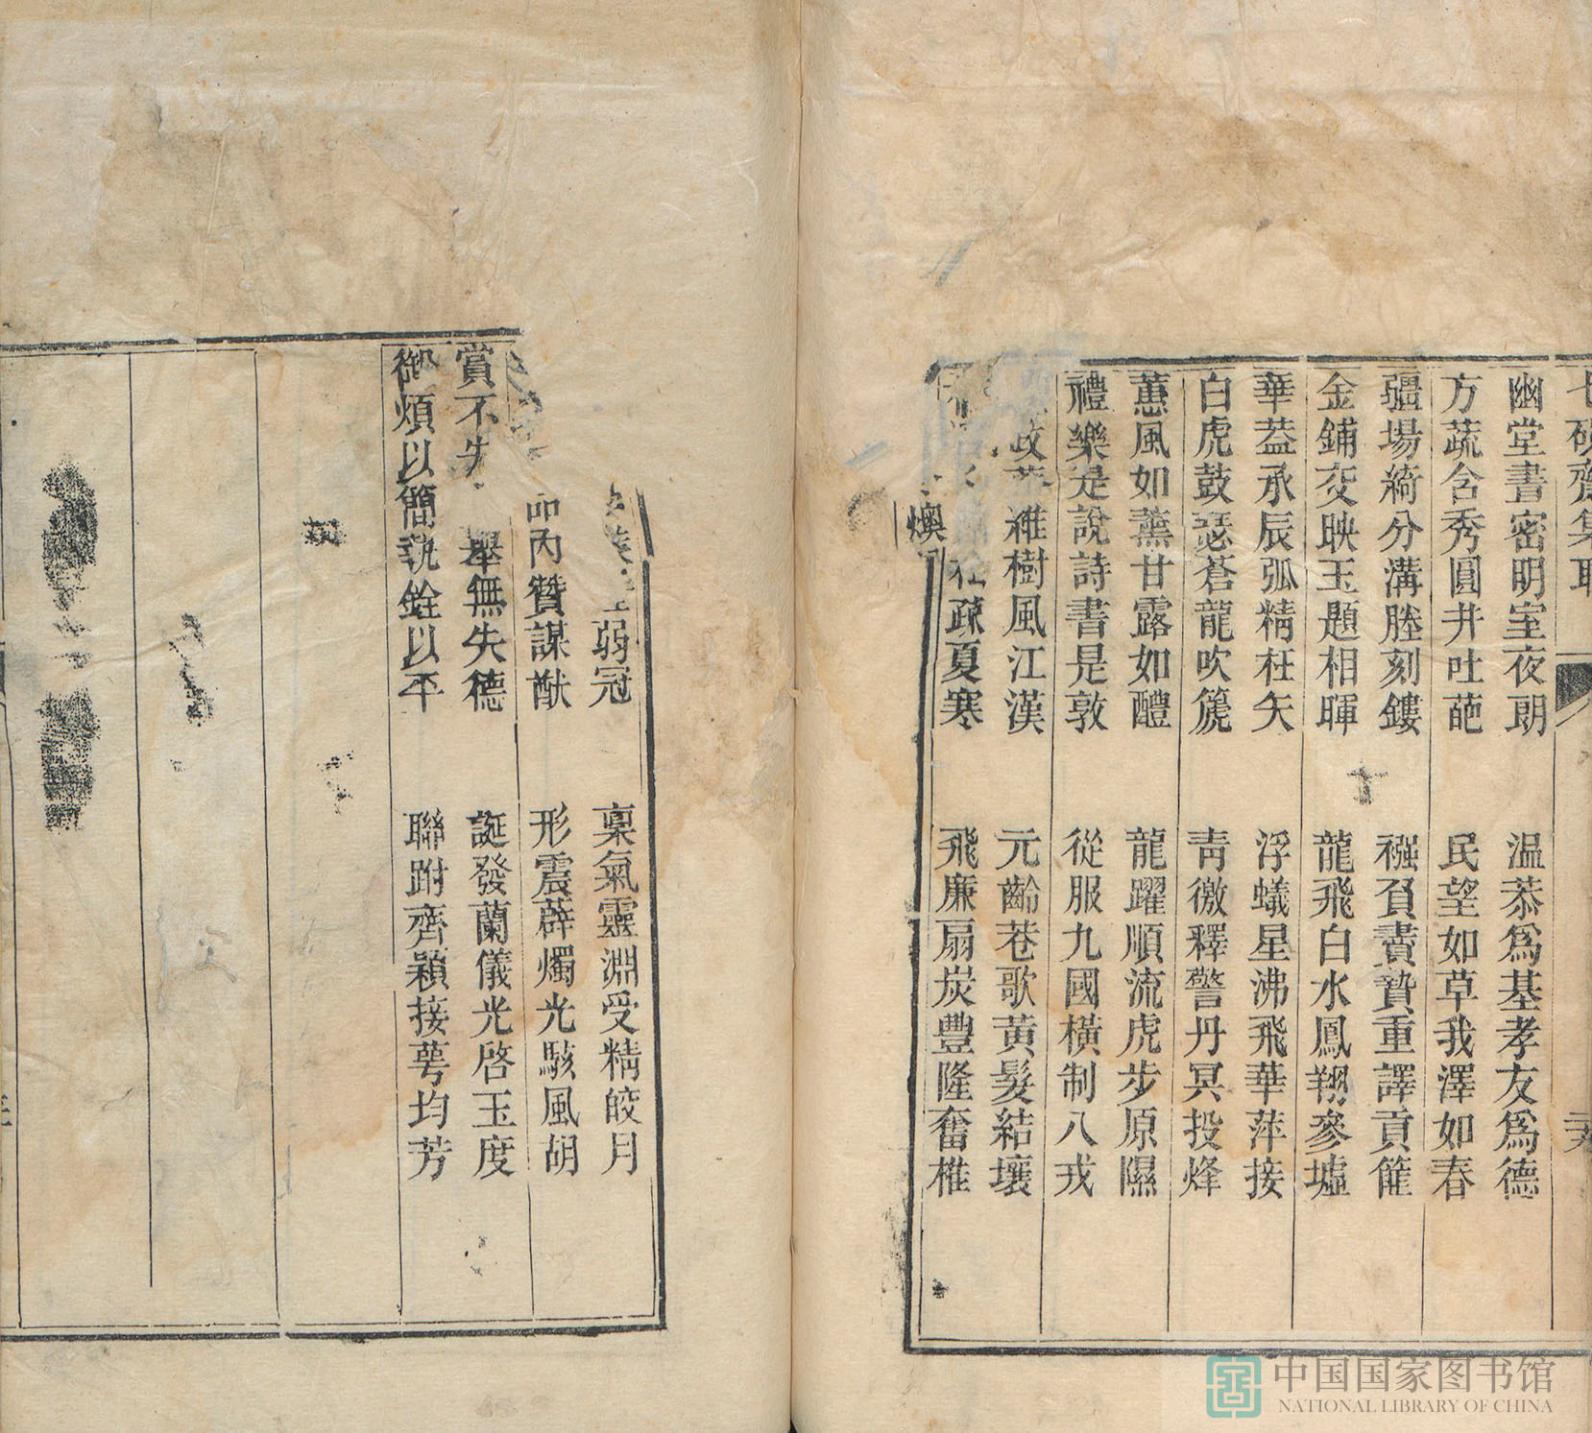 幽堂書密明室夜朗　温恭爲基孝友爲德
方蔬含秀圓井吐葩　民望如草我澤如春
疆場綺分溝塍刻鏤　襁負賮贄重譯貢篚
金鋪交映玉題相暉　龍飛白水鳳翔參墟
華葢承辰弧精枉矢　浮蟻星沸飛華萍接
白虎鼓瑟蒼龍吹篪　青徼釋警丹冥投烽
蕙風如薰甘露如醴　龍躍順流虎步原隰
禮樂是說詩書是敦　從服九國橫制八戎
樹風江漢　元齡巷歌黃髮結壤
疎夏寒　飛廉扇炭豊隆奮椎
燠
弱冠　稟氣靈淵受精皎月
丙贊謀猷　形震薜燭光駭風胡
賞不失 舉無失德　誕發蘭儀光啓玉度
御煩以簡執銓以平　聯跗齊穎接萼均芳
中国国家图书馆
NATIONAL LIBRARY OF CHINA